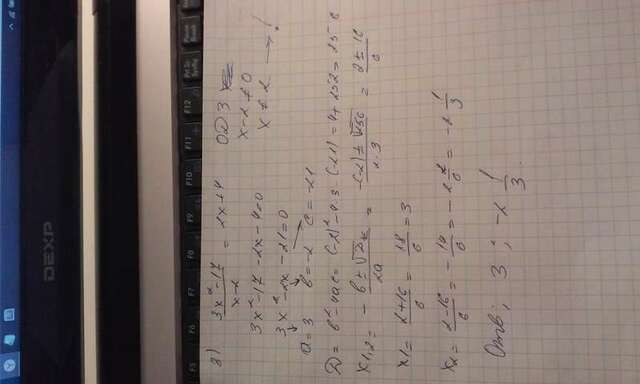 DEXP
F5 F6 F7 F8 F9 F10 F11 F12 Prt Sc SysRq Pause
3) (3x² - 17)/(x - 2) = 2x + 4 ОДЗ
x - 2 ≠ 0
3x² - 17 - 2x - 4 = 0
x ≠ 2 → !
3x² - 2x - 21 = 0
a = 3 b = -2 c = -21
D = b² - 4ac = (-2)² - 4·3·(-21) = 4 + 252 = 256
x1,2 = (-b ± √D)/2a = (-(-2) ± √256)/(2·3) = (2 ± 16)/6
x1 = (2+16)/6 = 18/6 = 3
x2 = (2-16)/6 = -14/6 = -2 2/6 = -2 1/3
Отв; 3 ; -2 1/3.